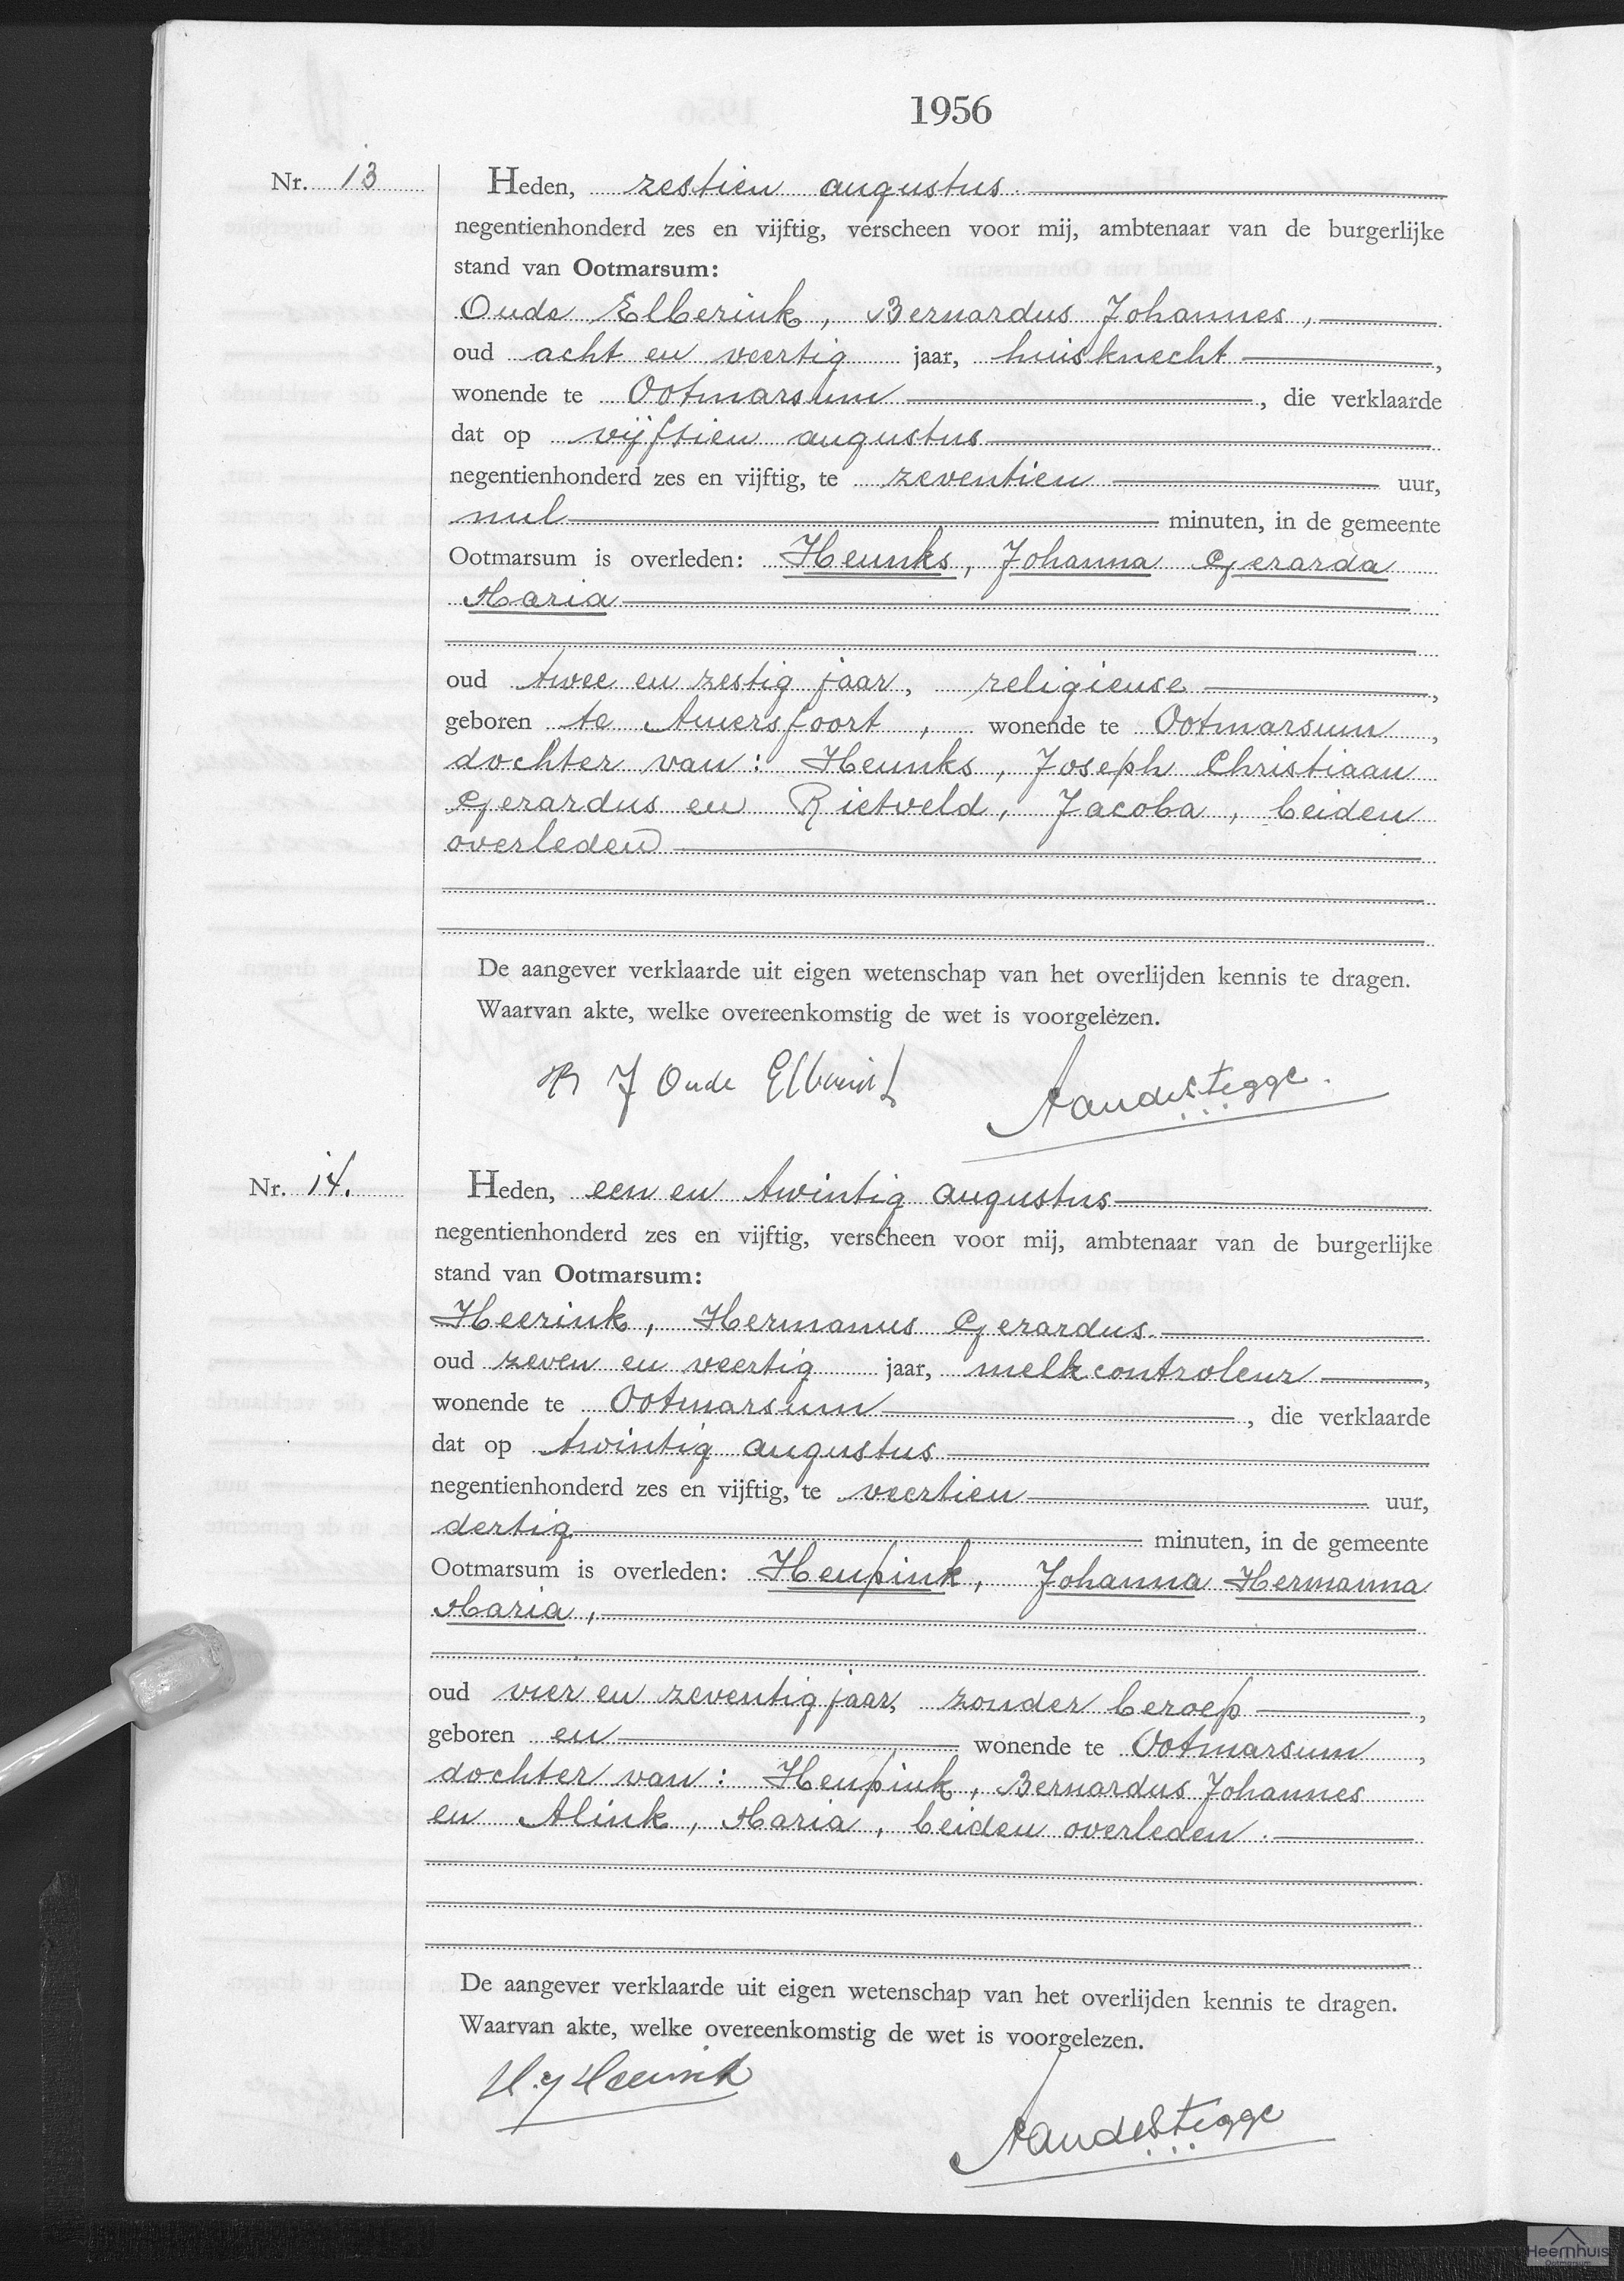 1956
Nr. 13
Heden, zestien augustus
negentienhonderd zes en vijftig, verscheen voor mij, ambtenaar van de burgerlijke
stand van Ootmarsum:
Oude Elberink, Bernardus Johannes,
oud acht en veertig jaar, huisknecht,
wonende te Ootmarsum, die verklaarde
dat op vijftien augustus
negentienhonderd zes en vijftig, te zeventien uur,
nul minuten, in de gemeente
Ootmarsum is overleden: Heunks, Johanna Gerarda
Maria
oud twee en zestig jaar, religieuse,
geboren te Amersfoort, wonende te Ootmarsum,
dochter van: Heunks, Joseph Christiaan
Gerardus en Rietveld, Jacoba, beiden
overleden
De aangever verklaarde uit eigen wetenschap van het overlijden kennis te dragen.
Waarvan akte, welke overeenkomstig de wet is voorgelezen.
J Oude Elberink
Nr. 14.
Heden, een en twintig augustus
negentienhonderd zes en vijftig, verscheen voor mij, ambtenaar van de burgerlijke
stand van Ootmarsum:
Heerink, Hermanus Gerardus.
oud zeven en veertig jaar, melkcontroleur,
wonende te Ootmarsum, die verklaarde
dat op twintig augustus
negentienhonderd zes en vijftig, te veertien uur,
dertig minuten, in de gemeente
Ootmarsum is overleden: Heupink, Johanna Hermanna
Maria,
oud vier en zeventig jaar, zonder beroep,
geboren en wonende te Ootmarsum,
dochter van: Heupink, Bernardus Johannes
en Alink, Maria, beiden overleden.
De aangever verklaarde uit eigen wetenschap van het overlijden kennis te dragen.
Waarvan akte, welke overeenkomstig de wet is voorgelezen.
H.G Heerink
Heemhuis
Ootmarsum